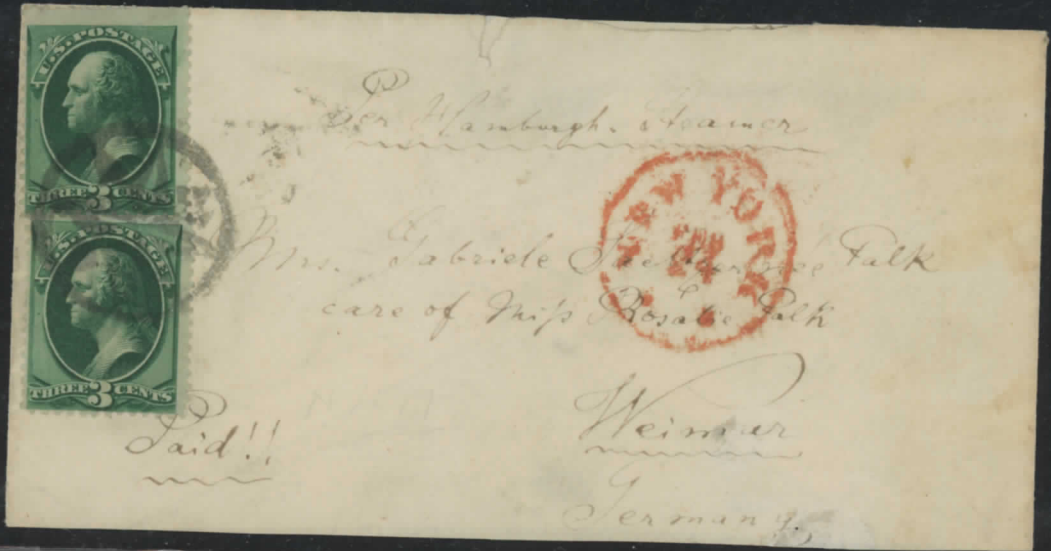 U.S. POSTAGE
THREE 3 CENTS
U.S. POSTAGE
THREE 3 CENTS
Per Hamburgh. Steamer
NEW YORK
Mrs. Gabriele née Falk
care of Miſs Rosalie Falk
Weimar
Germany.
Paid!!